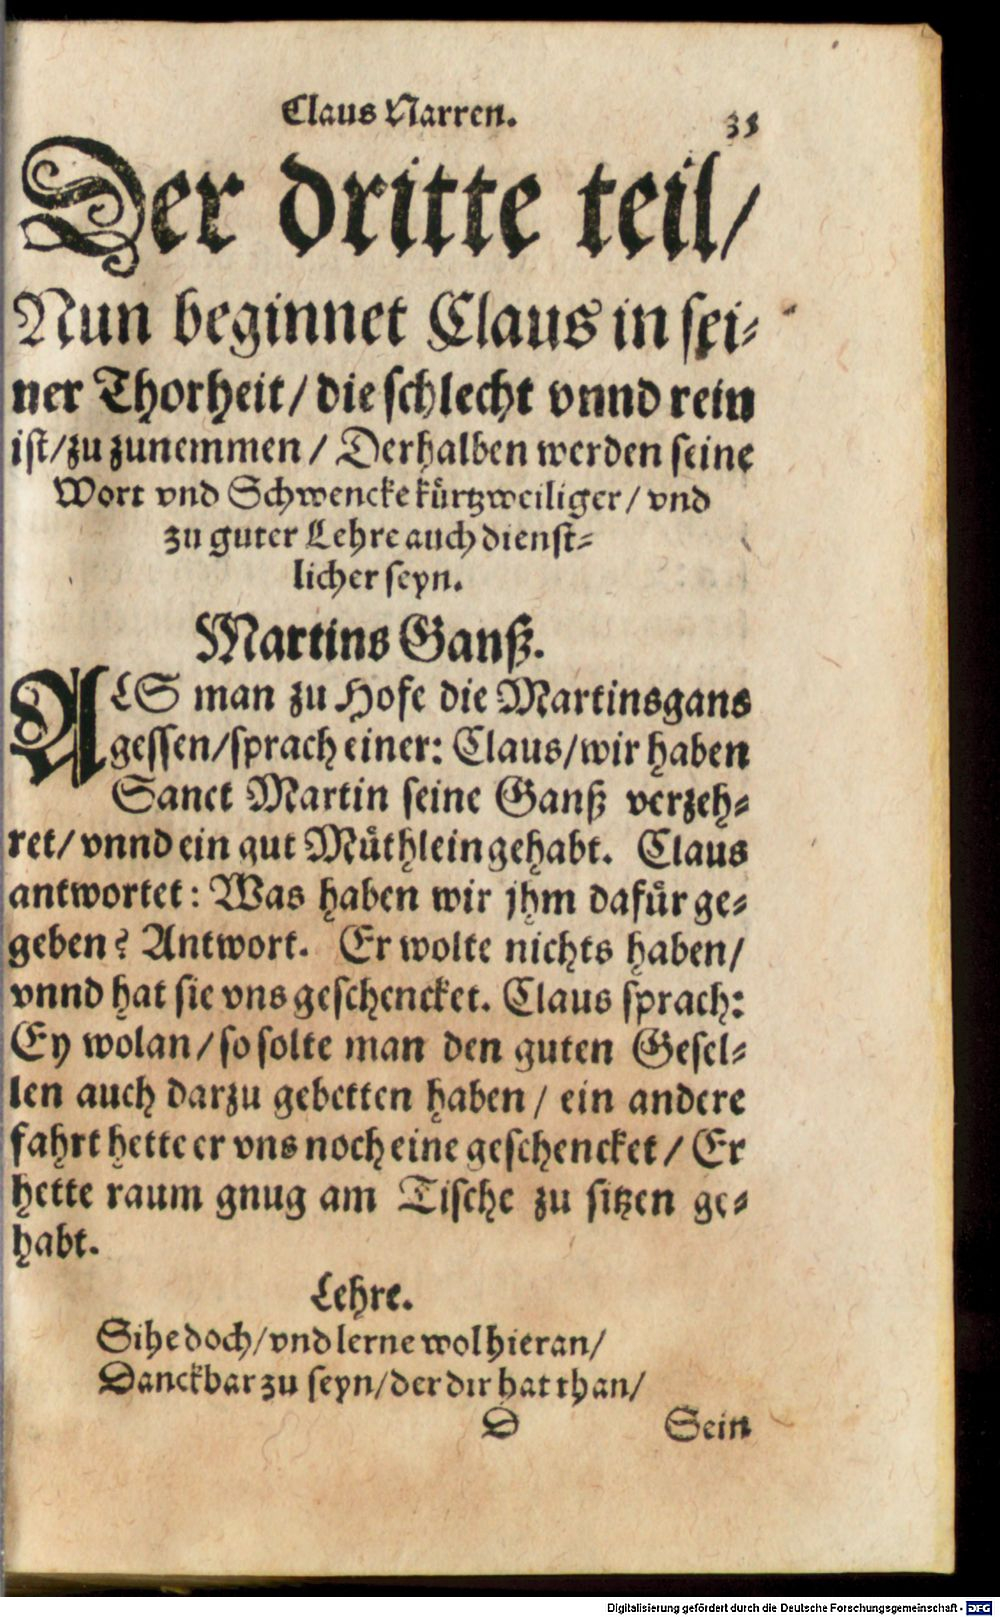 Claus Narren. 33
Der dritte teil/
Nun beginnet Claus in sei⸗
ner Thorheit/ die schlecht vnnd rein
ist/zu zunemmen/ Derhalben werden seine
Wort vnd Schwencke kürtzweiliger/ vnd
zu guter Lehre auch dienst⸗
licher seyn.
Martins Ganß.
ALS man zu Hofe die Martinsgans
gessen/sprach einer: Claus/wir haben
Sanct Martin seine Ganß verzeh⸗
ret/ vnnd ein gut Müthlein gehabt. Claus
antwortet: Was haben wir jhm dafür ge⸗
geben? Antwort. Er wolte nichts haben/
vnnd hat sie vns geschencket. Claus sprach:
Ey wolan/so solte man den guten Gesel⸗
len auch darzu gebetten haben/ ein andere
fahrt hette er vns noch eine geschencket/ Er
hette raum gnug am Tische zu sitzen ge⸗
habt.
Lehre.
Sihe doch/vnd lerne wol hieran/
Danckbar zu seyn/der dir hat than/
D Sein
Digitalisierung gefördert durch die Deutsche Forschungsgemeinschaft - DFG